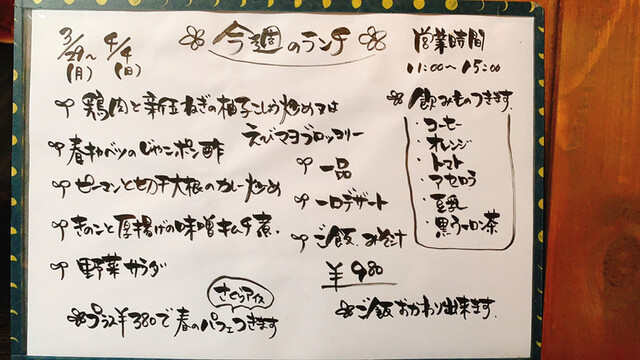 3/29～4/4
(月) (日)
今週のランチ
営業時間
11:00～15:00
鶏肉と新玉ねぎの柚子こしょう炒め
えびマヨブロッコリー
春キャベツのじゃこポン酢
ピーマンと切干大根のカレー炒め
きのこと厚揚げの味噌キムチ煮
野菜サラダ
一品
一口デザート
ご飯、みそ汁
¥980
飲みものつきます
・コーヒー
・オレンジ
・トマト
・アセロラ
・豆乳
・黒ウーロン茶
さくらアイス
プラス¥380で春のパフェつきます
ご飯おかわり出来ます